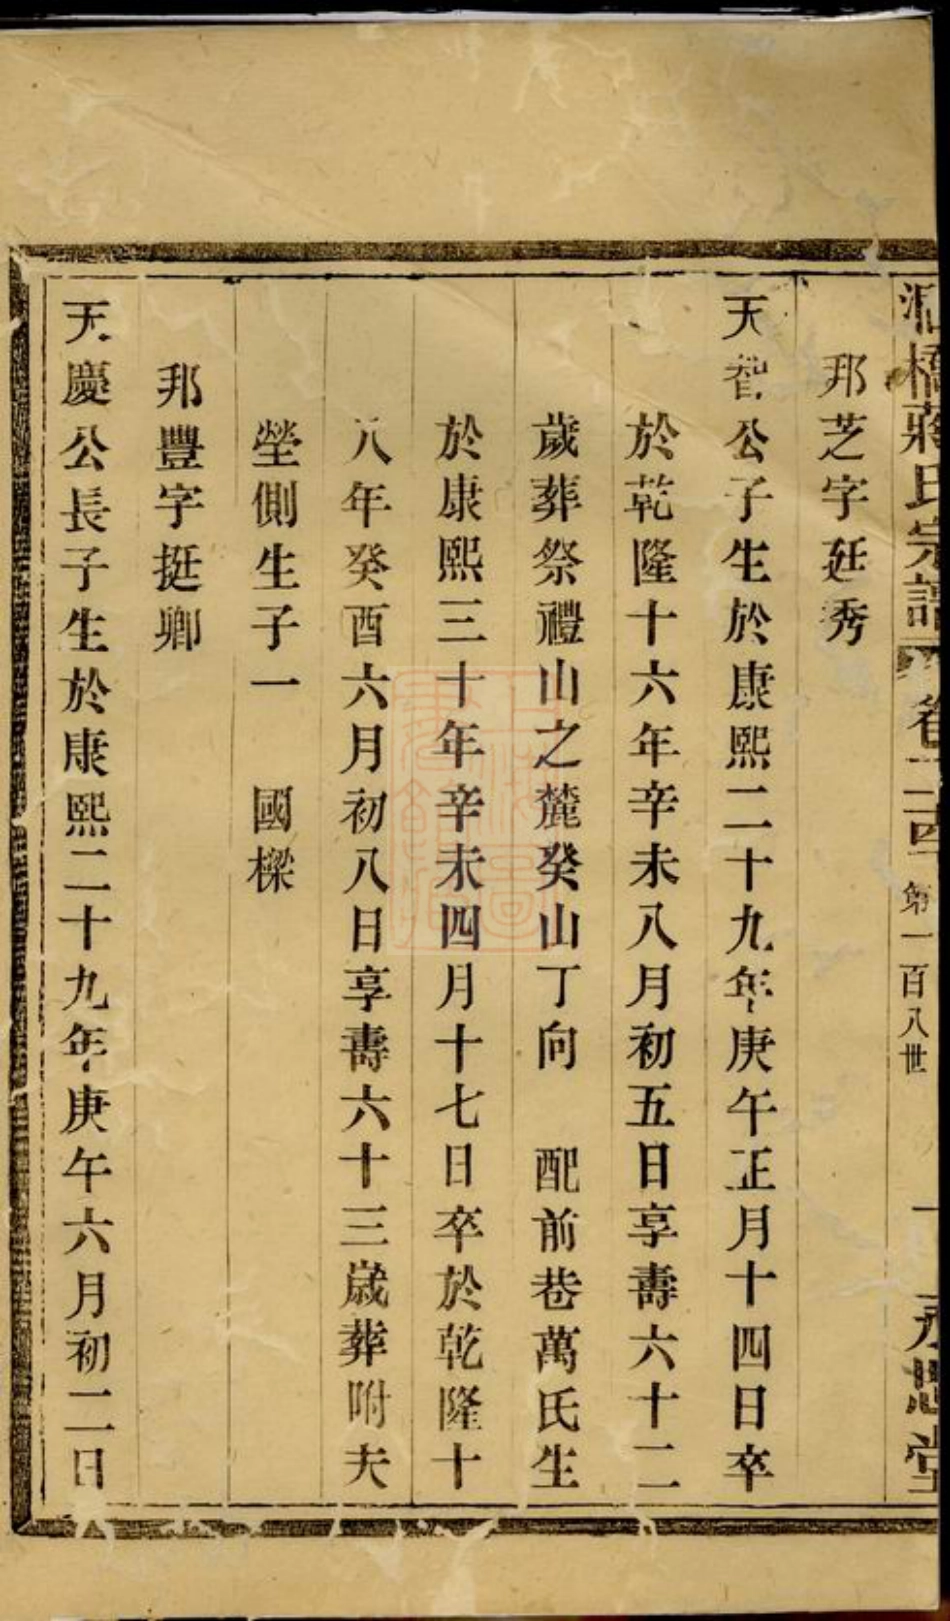 橋蔣氏宗譜 卷二十四 第一百八世 永思堂
邦芝字廷秀
天智公子生於康熙二十九年庚午正月十四日卒
於乾隆十六年辛未八月初五日享壽六十二
歲葬祭禮山之麓癸山丁向 配前巷萬氏生
於康熙三十年辛未四月十七日卒於乾隆十
八年癸酉六月初八日享壽六十三歲葬附夫
塋側生子一 國樑
邦豐字挺卿
天慶公長子生於康熙二十九年庚午六月初二日